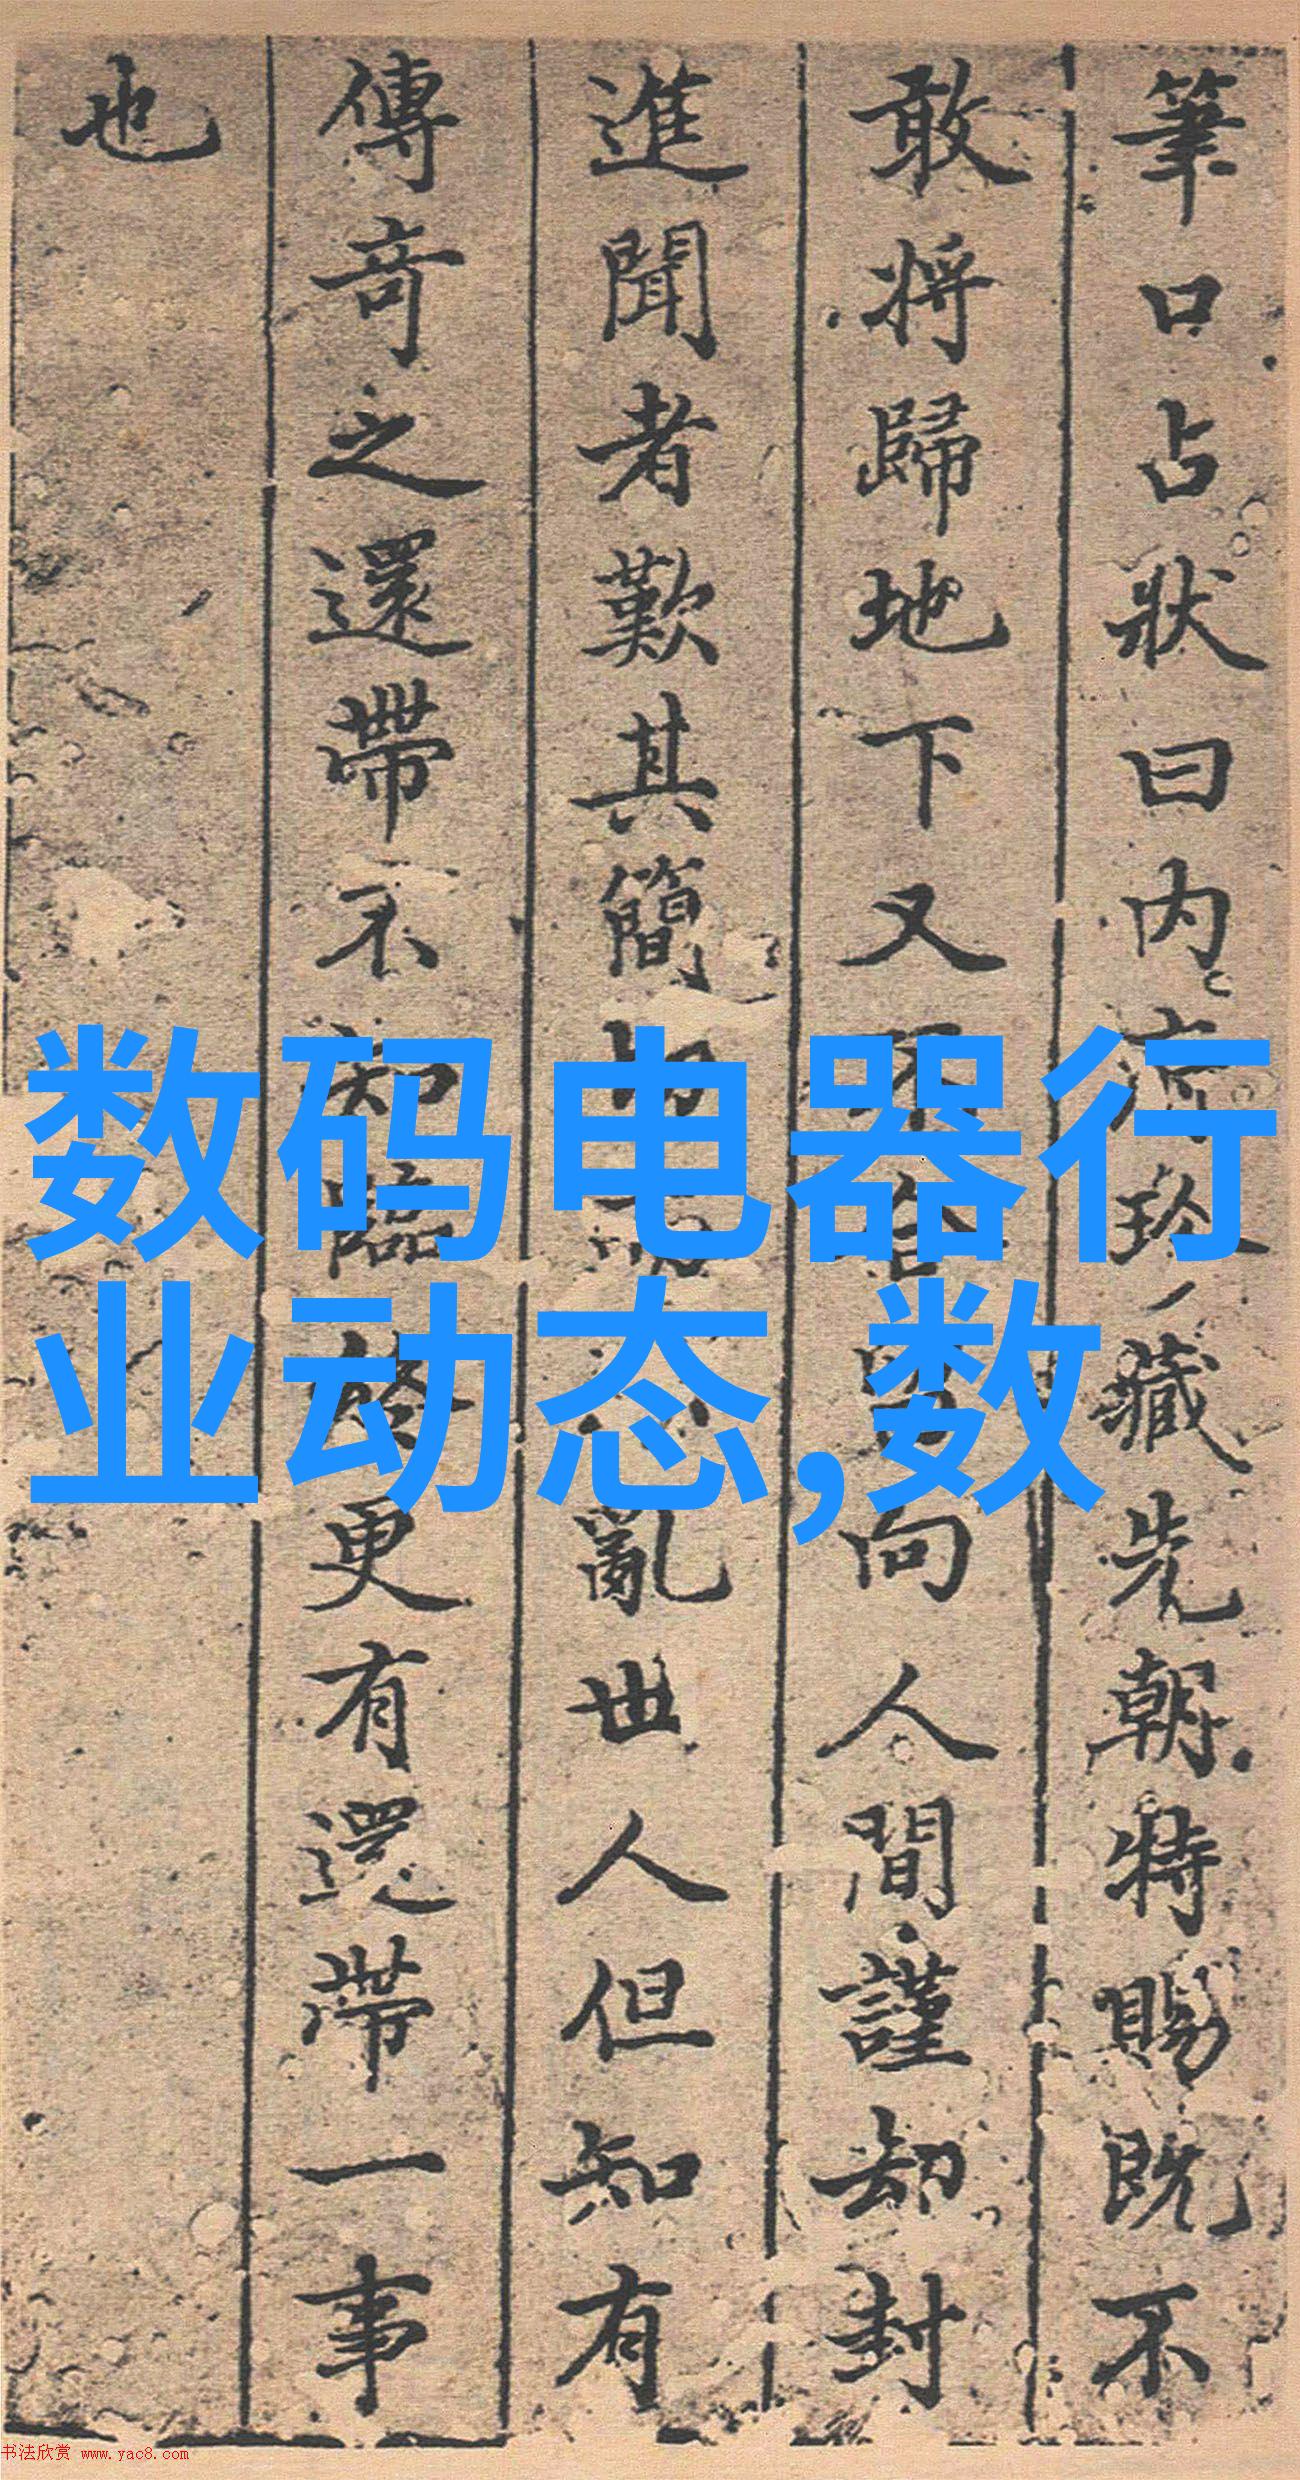 筆口占狀曰内珍藏先朝特賜既不
敢將歸地下又不向人間謹却封
進聞者歎其簡切亂世人但知有
傳奇之還帶不知臨終更有還帶一事
也
数码电器行
业动态,数
书法欣赏 www.yac8.com